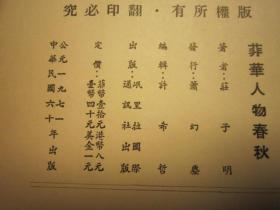 版權所有·翻印必究
菲華人物春秋
著者：莊子明
發行：蕭幻塵
編輯：許希哲
出版：岷里拉國際通訊社出版
定價：菲幣壹拾元港幣八元
臺幣四十元美金一元
公元一九七一
中華民國六十年出版